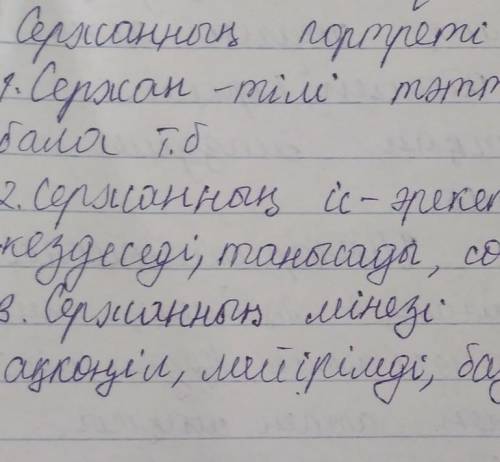 Сержанның портреті
1. Сержан - тілі тәтт
бала т.б
2. Сержанның іс - әрекет
кездеседі, танысады, со
3. Сержанның мінезі
ақкөңіл, мейірімді, ба